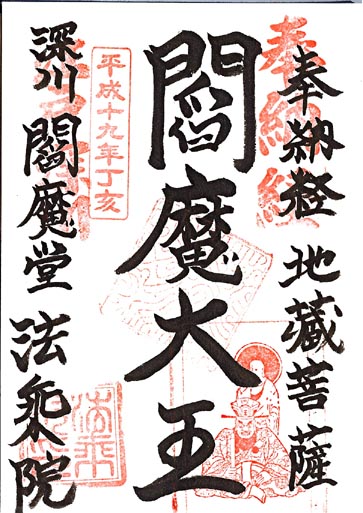 奉納経 地蔵菩薩
奉納経
閻魔大王
平成十九年丁亥
深川 閻魔堂 法乗院